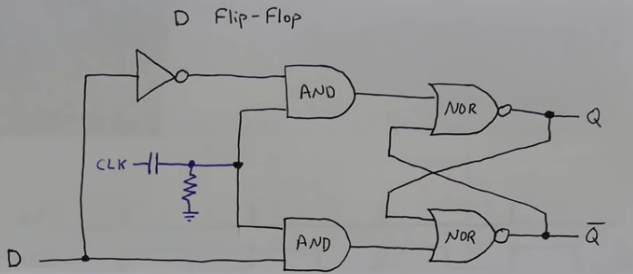 D Flip-Flop
AND
NOR
Q
CLK
AND
NOR
Q̅
D